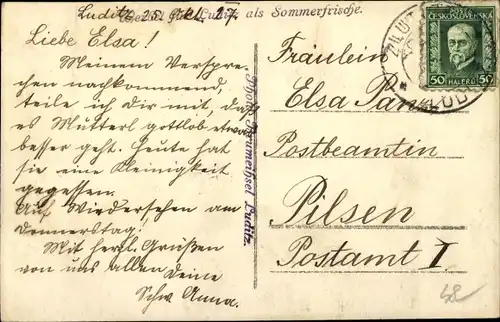 Luditz 25. Okt. 27.
Luditz als Sommerfrische.
Liebe Elsa!
Meinem Verspre-
chen nachkommend,
teile ich dir mit, daß
es Mutterl gottlob etwas
besser geht. Heute hat
sie eine Kleinigkeit
gegessen.
Auf Wiedersehen am
Donnerstag!
Mit herzl. Grüßen
von uns allen Deine
Schw. Anna.
Luditz.
Fräulein
Elsa
Postbeamtin
Pilsen
Postamt I.
POŠTA
ČESKOSLOVENSKÁ
50 HALÉŘŮ 50
ŽLUT
LUD